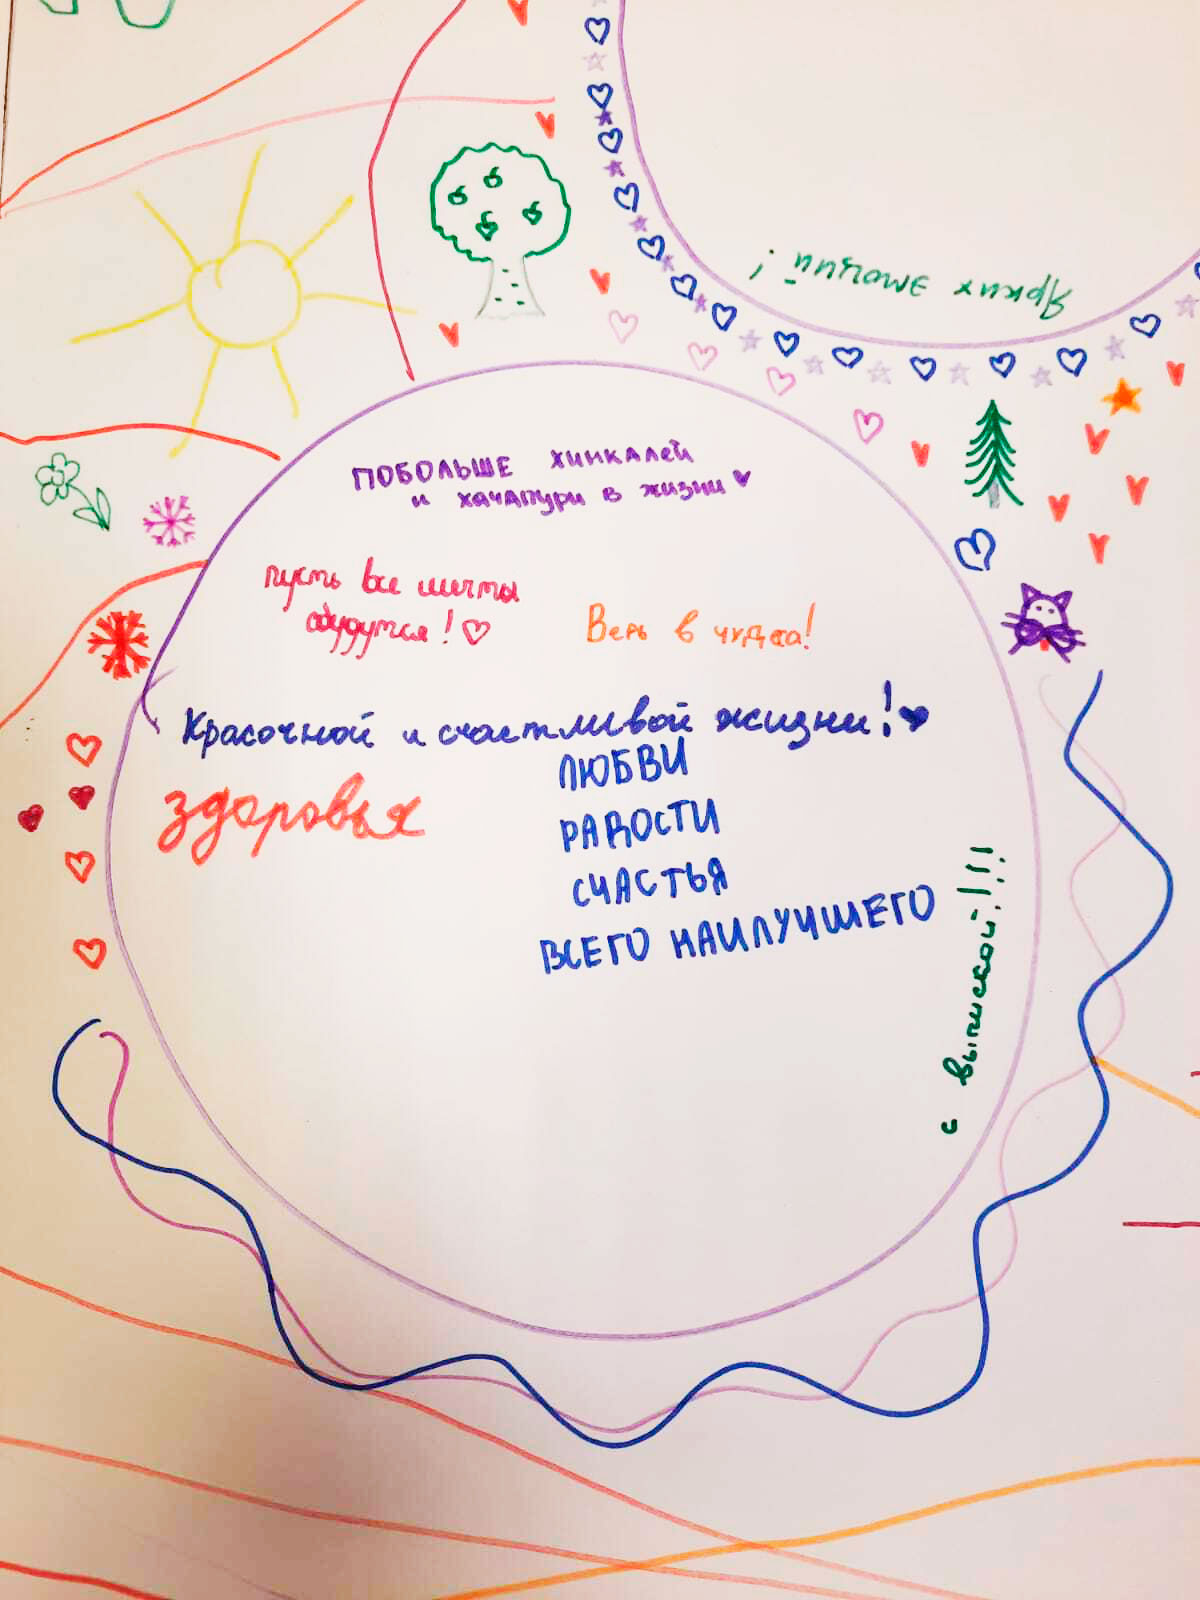 Ярких эмоций!
ПОБОЛЬШЕ ХИНКАЛЕЙ
и хачапури в жизни
пусть все мечты
сбудутся!
Верь в чудеса!
Красочной и счастливой жизни!
здоровья
ЛЮБВИ
РАДОСТИ
СЧАСТЬЯ
ВСЕГО НАИЛУЧШЕГО
с выпиской!!!